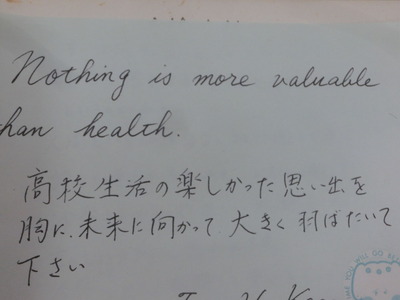 Nothing is more valuable
than health.
高校生活の楽しかった思い出を
胸に、未来に向かって大きく羽ばたいて
下さい